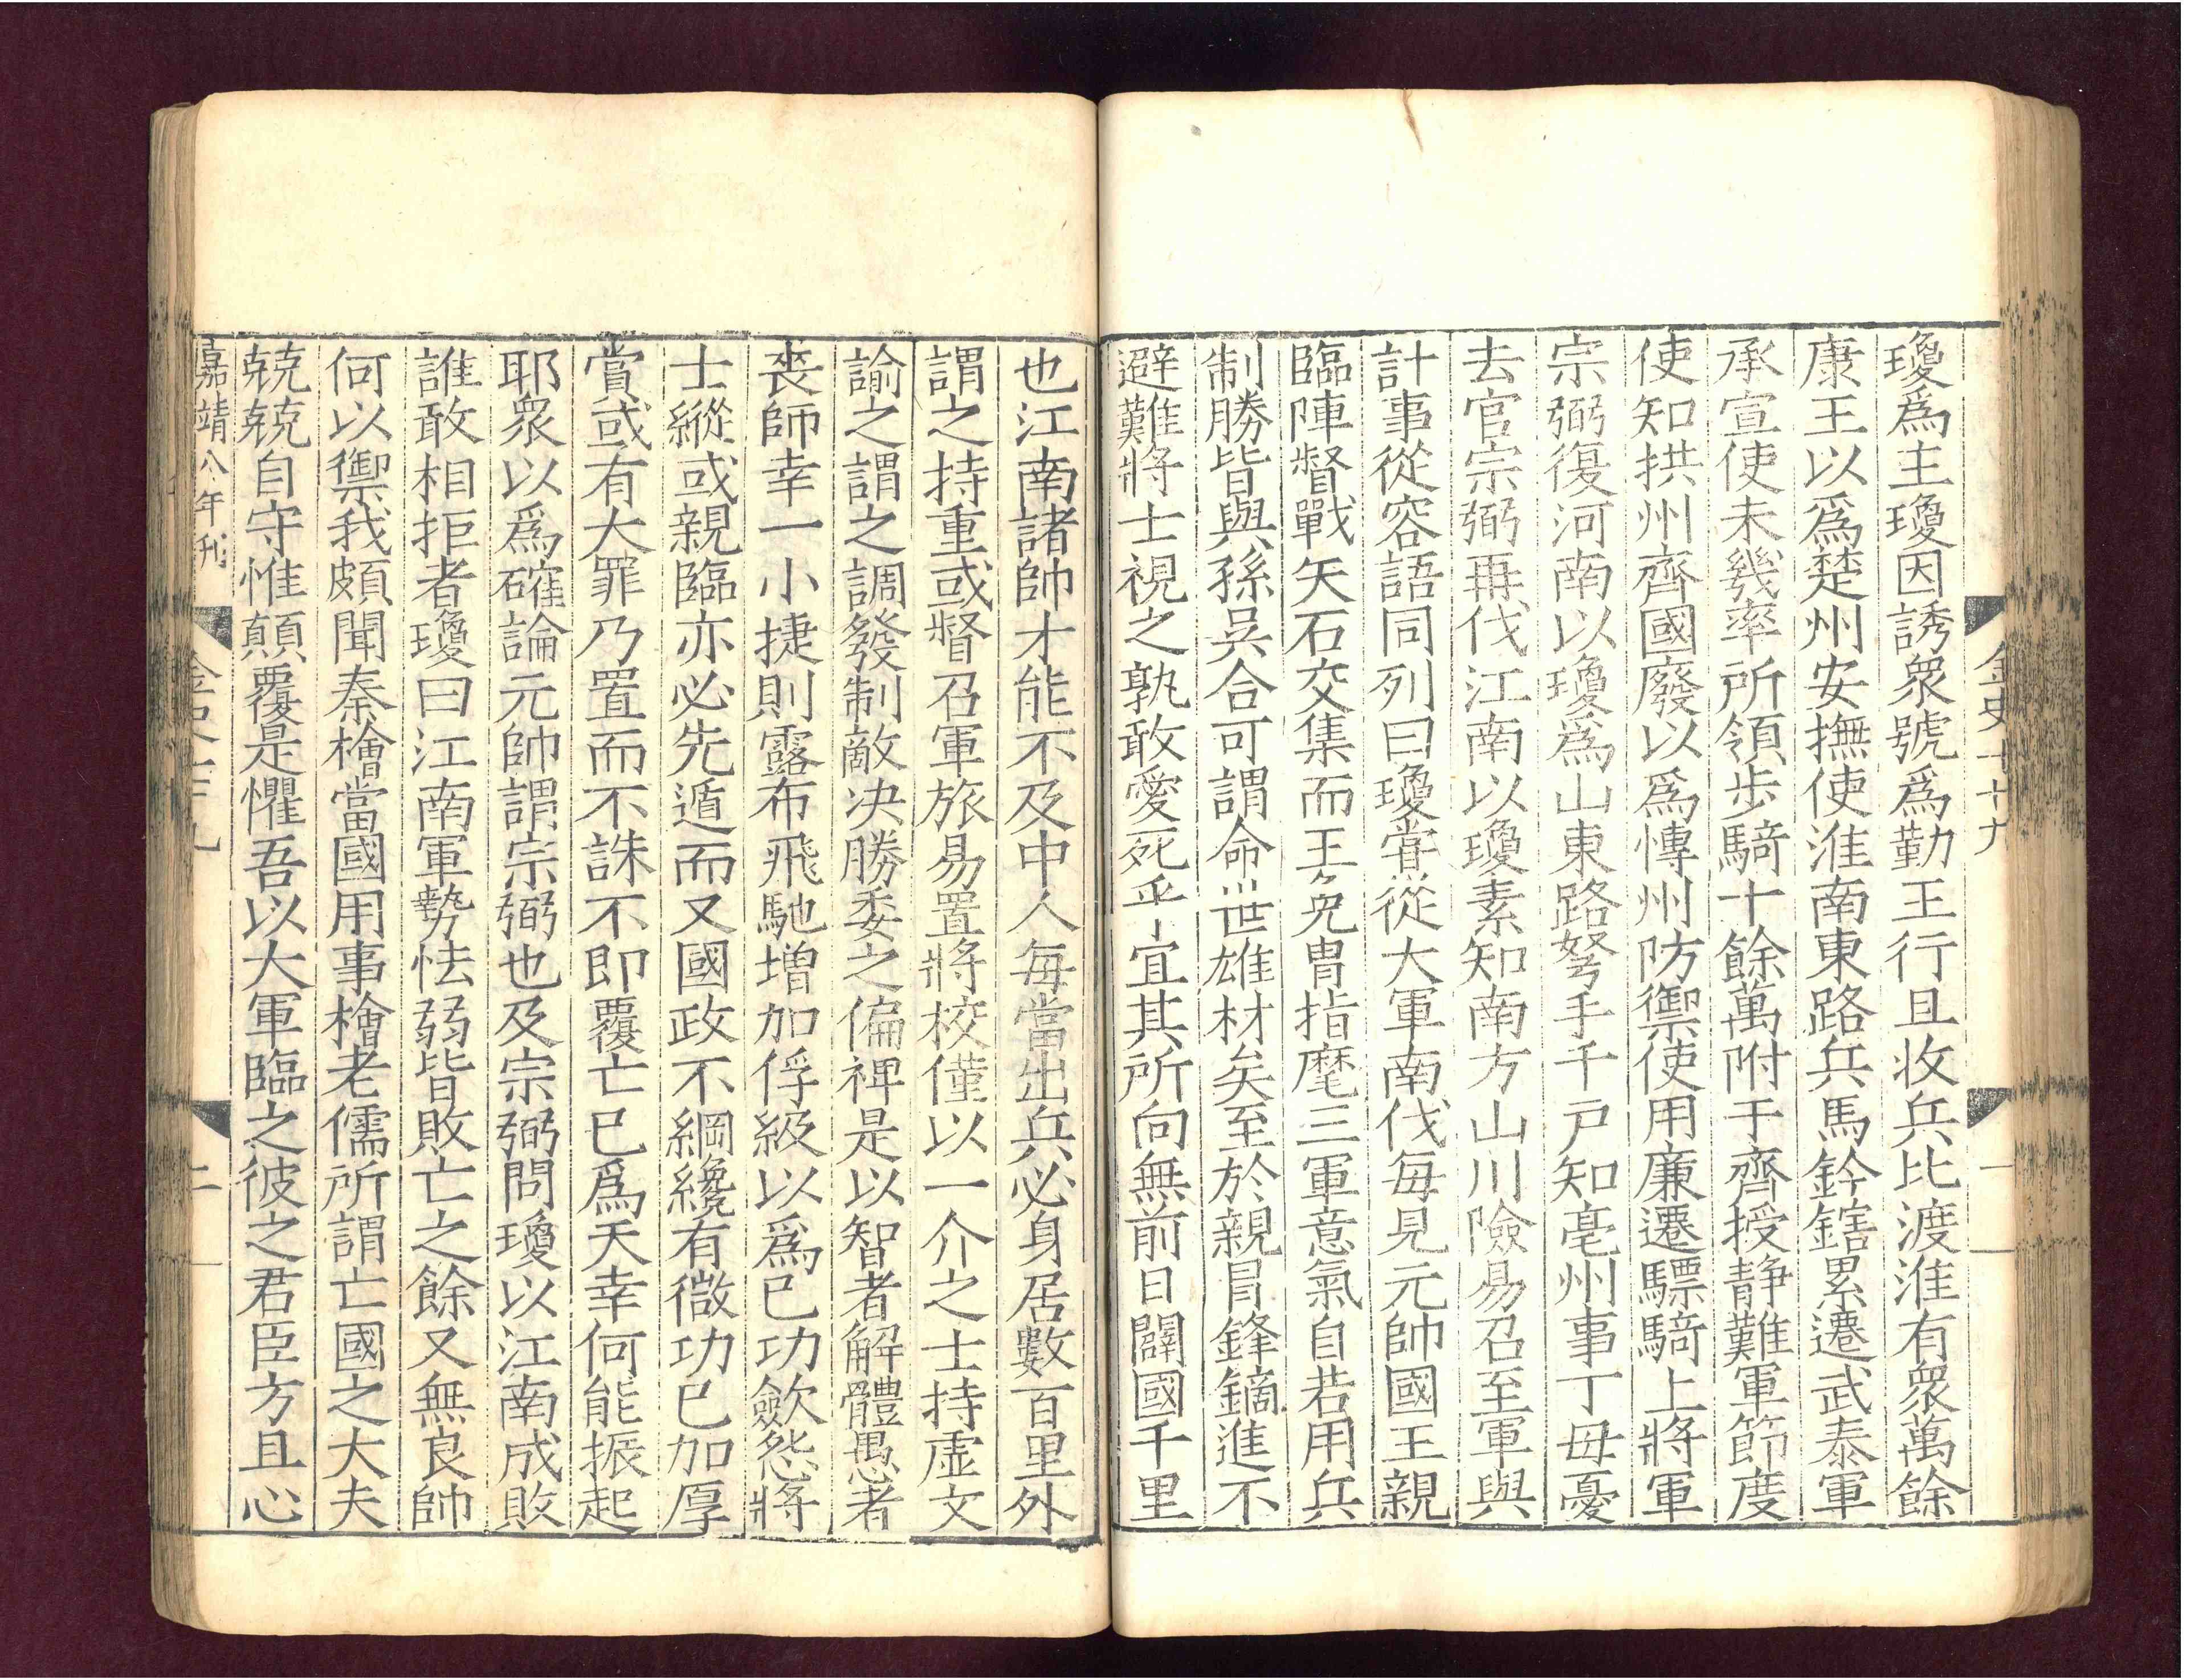 金史七十九
一
瓊爲主瓊因誘衆號爲勤王行且收兵比渡淮有衆萬餘
康王以爲楚州安撫使淮南東路兵馬鈐轄累遷武泰軍
承宣使未幾率所領步騎十餘萬附于齊授靜難軍節度
使知拱州齊國廢以爲慱州防禦使用廉遷驃騎上將軍
宗弼復河南以瓊爲山東路弩手千戶知亳州事丁母憂
去官宗弼再伐江南以瓊素知南方山川險易召至軍與
計事從容語同列曰瓊甞從大軍南伐每見元帥國王親
臨陣督戰矢石交集而王免冑指麾三軍意氣自若用兵
制勝皆與孫吳合可謂命世雄材矣至於親冒鋒鏑進不
避難將士視之孰敢愛死乎宜其所向無前日闢國千里
也江南諸帥才能不及中人每當出兵必身居數百里外
謂之持重或督召軍旅易置將校僅以一介之士持虛文
諭之謂之調發制敵決勝委之偏裨是以智者解體愚者
喪師幸一小捷則露布飛馳增加俘級以爲己功歛怨將
士縱或親臨亦必先遁而又國政不綱纔有微功已加厚
賞或有大罪乃置而不誅不即覆亡已爲天幸何能振起
耶衆以爲確論元帥謂宗弼也及宗弼問瓊以江南成敗
誰敢相拒者瓊曰江南軍勢怯弱皆敗亡之餘又無良帥
何以禦我頗聞秦檜當國用事檜老儒所謂亡國之大夫
兢兢自守惟顛覆是懼吾以大軍臨之彼之君臣方且心
嘉靖八年刊
二